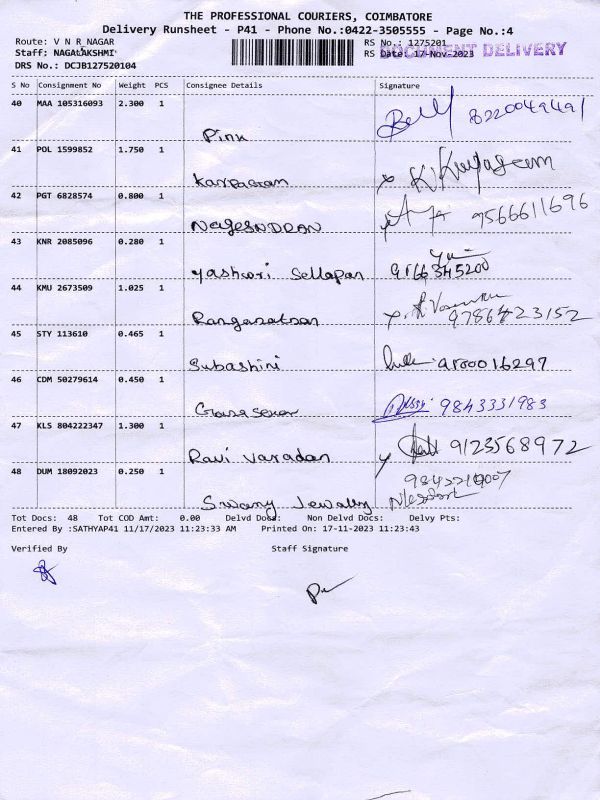 THE PROFESSIONAL COURIERS, COIMBATORE
Delivery Runsheet - P41 - Phone No.:0422-3505555 - Page No.:4
Route: V N R NAGAR RS No.: 1275201
Staff: NAGALAKSHMI RS Date: 17-Nov-2023 DOCUMENT DELIVERY
DRS No.: DCJB127520104
S No Consignment No Weight PCS Consignee Details Signature
40 MAA 105316093 2.300 1
Pink 8220049491
41 POL 1599852 1.750 1
Karpagam
42 PGT 6828574 0.800 1
Nagesndran 9566611696
43 KNR 2085096 0.280 1
Yashwri Sellapan 9166345200
44 KMU 2673509 1.025 1
Ranganatsan 9786423152
45 STY 113610 0.465 1
Subashini
46 CDM 50279614 0.450 1
9843331983
47 KLS 804222347 1.300 1
Ravi varadan 9123568972
48 DUM 18092023 0.250 1
Swamy
Tot Docs: 48 Tot COD Amt: 0.00 Delvd Docs: Non Delvd Docs: Delvy Pts:
Entered By :SATHYAP41 11/17/2023 11:23:33 AM Printed On: 17-11-2023 11:23:43
Verified By Staff Signature